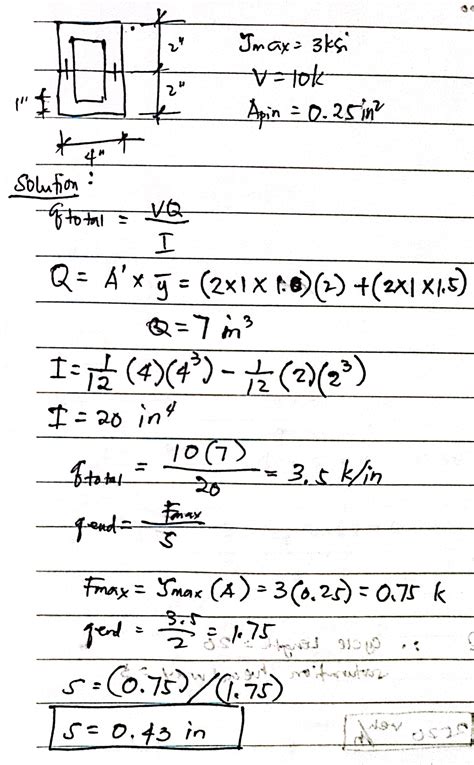 2"
2"
1"
4"
τmax = 3ksi
V = 10k
Apin = 0.25 in²
Solution :
qtotal = VQ / I
Q = A' x ȳ = (2x1x1.0)(2) + (2x1x1.5)
Q = 7 in³
I = 1/12 (4)(4³) - 1/12 (2)(2³)
I = 20 in⁴
qtotal = 10(7) / 20 = 3.5 k/in
qend = Fmax / S
Fmax = τmax (A) = 3(0.25) = 0.75 k
qend = 3.5 / 2 = 1.75
s = (0.75)/(1.75)
s = 0.43 in